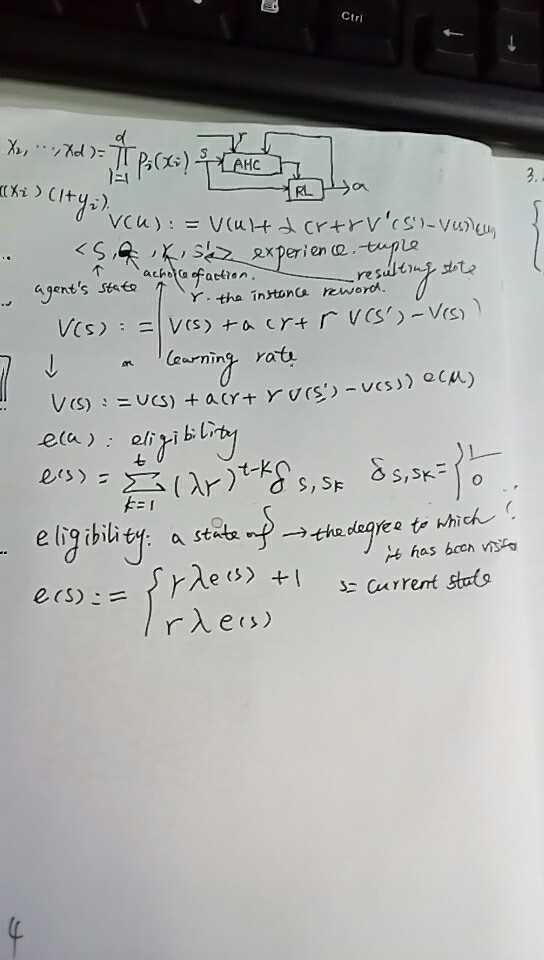 Ctrl
x₂, ⋯, xd) = ∏ᵈᵢ₌₁ Pᵢ(xᵢ)
r
s
AHC
RL
a
3.
(xᵢ) (1+yᵢ).
V(u) := V(u) + α (r + r V'(s') - V(s))
< s, a, r, s' > experience tuple
agent's state
a choice of action.
resulting state
r. the instance reword.
V(s) := V(s) + a (r + r V(s') - V(s))
learning rate
V(s) := V(s) + a(r + r V(s') - V(s)) e(u)
e(u): eligibility
e(s) = ∑ᵗₖ₌₁ (λr)ᵗ⁻ᵏ δ s,sₖ δ s,sₖ = { 1 0
eligibility: a state of → the degree to which
it has been
e(s) := { rλe(s) + 1 s = current state
rλe(s)
4